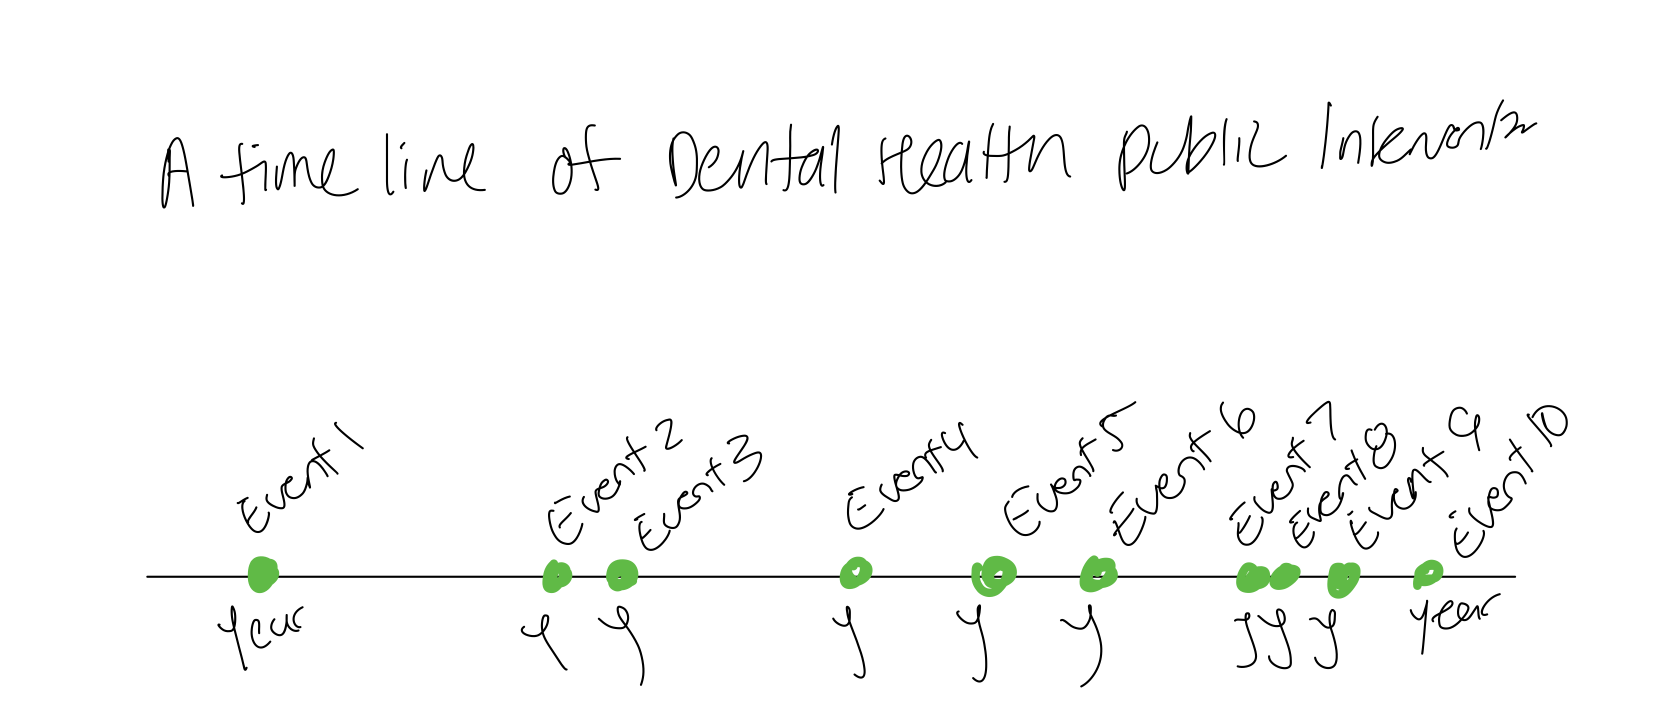 A time line of Dental Health public
Event 1
Event 2
Event 3
Event 4
Event 5
Event 6
Event 7
Event 8
Event 9
Event 10
Year
y
y
y
y
y
y
y
y
year